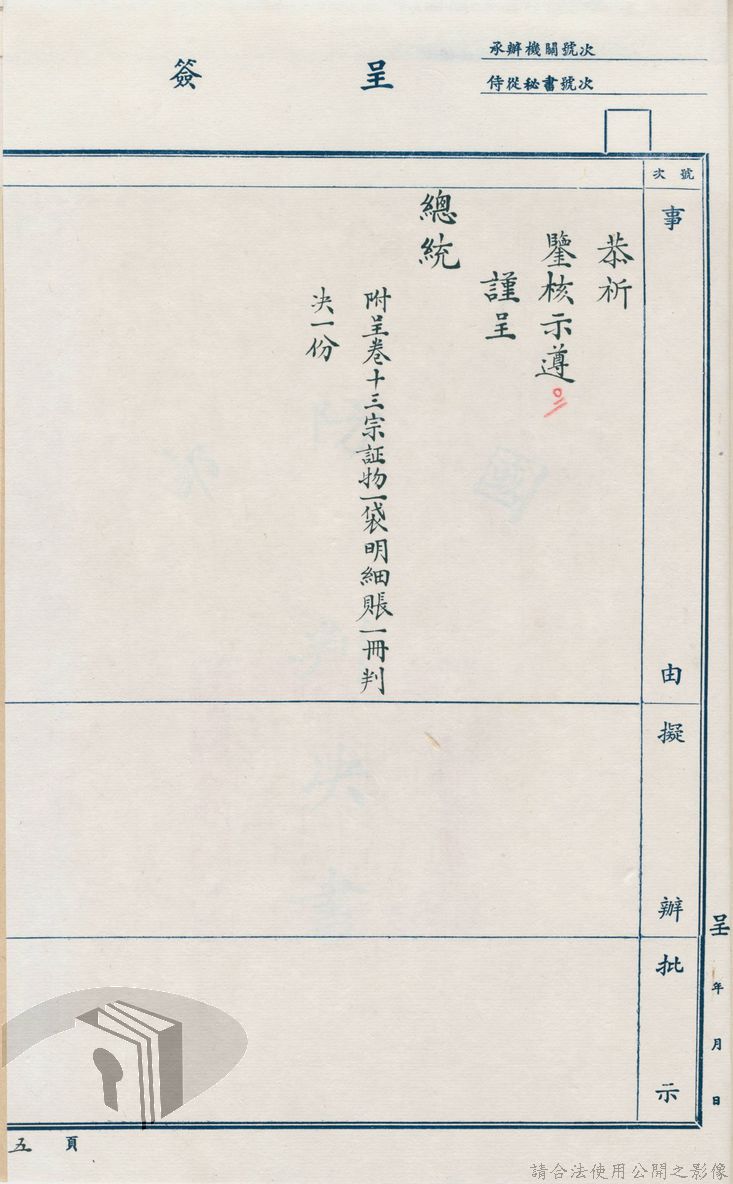 承辦機關號次
侍從秘書號次
簽呈
號次
事由
擬辦
批示
恭祈
鑒核示遵
謹呈
總統
附呈卷十三宗証物一袋明細賬一冊判
決一份
呈 年 月 日
五頁
請合法使用公開之影像